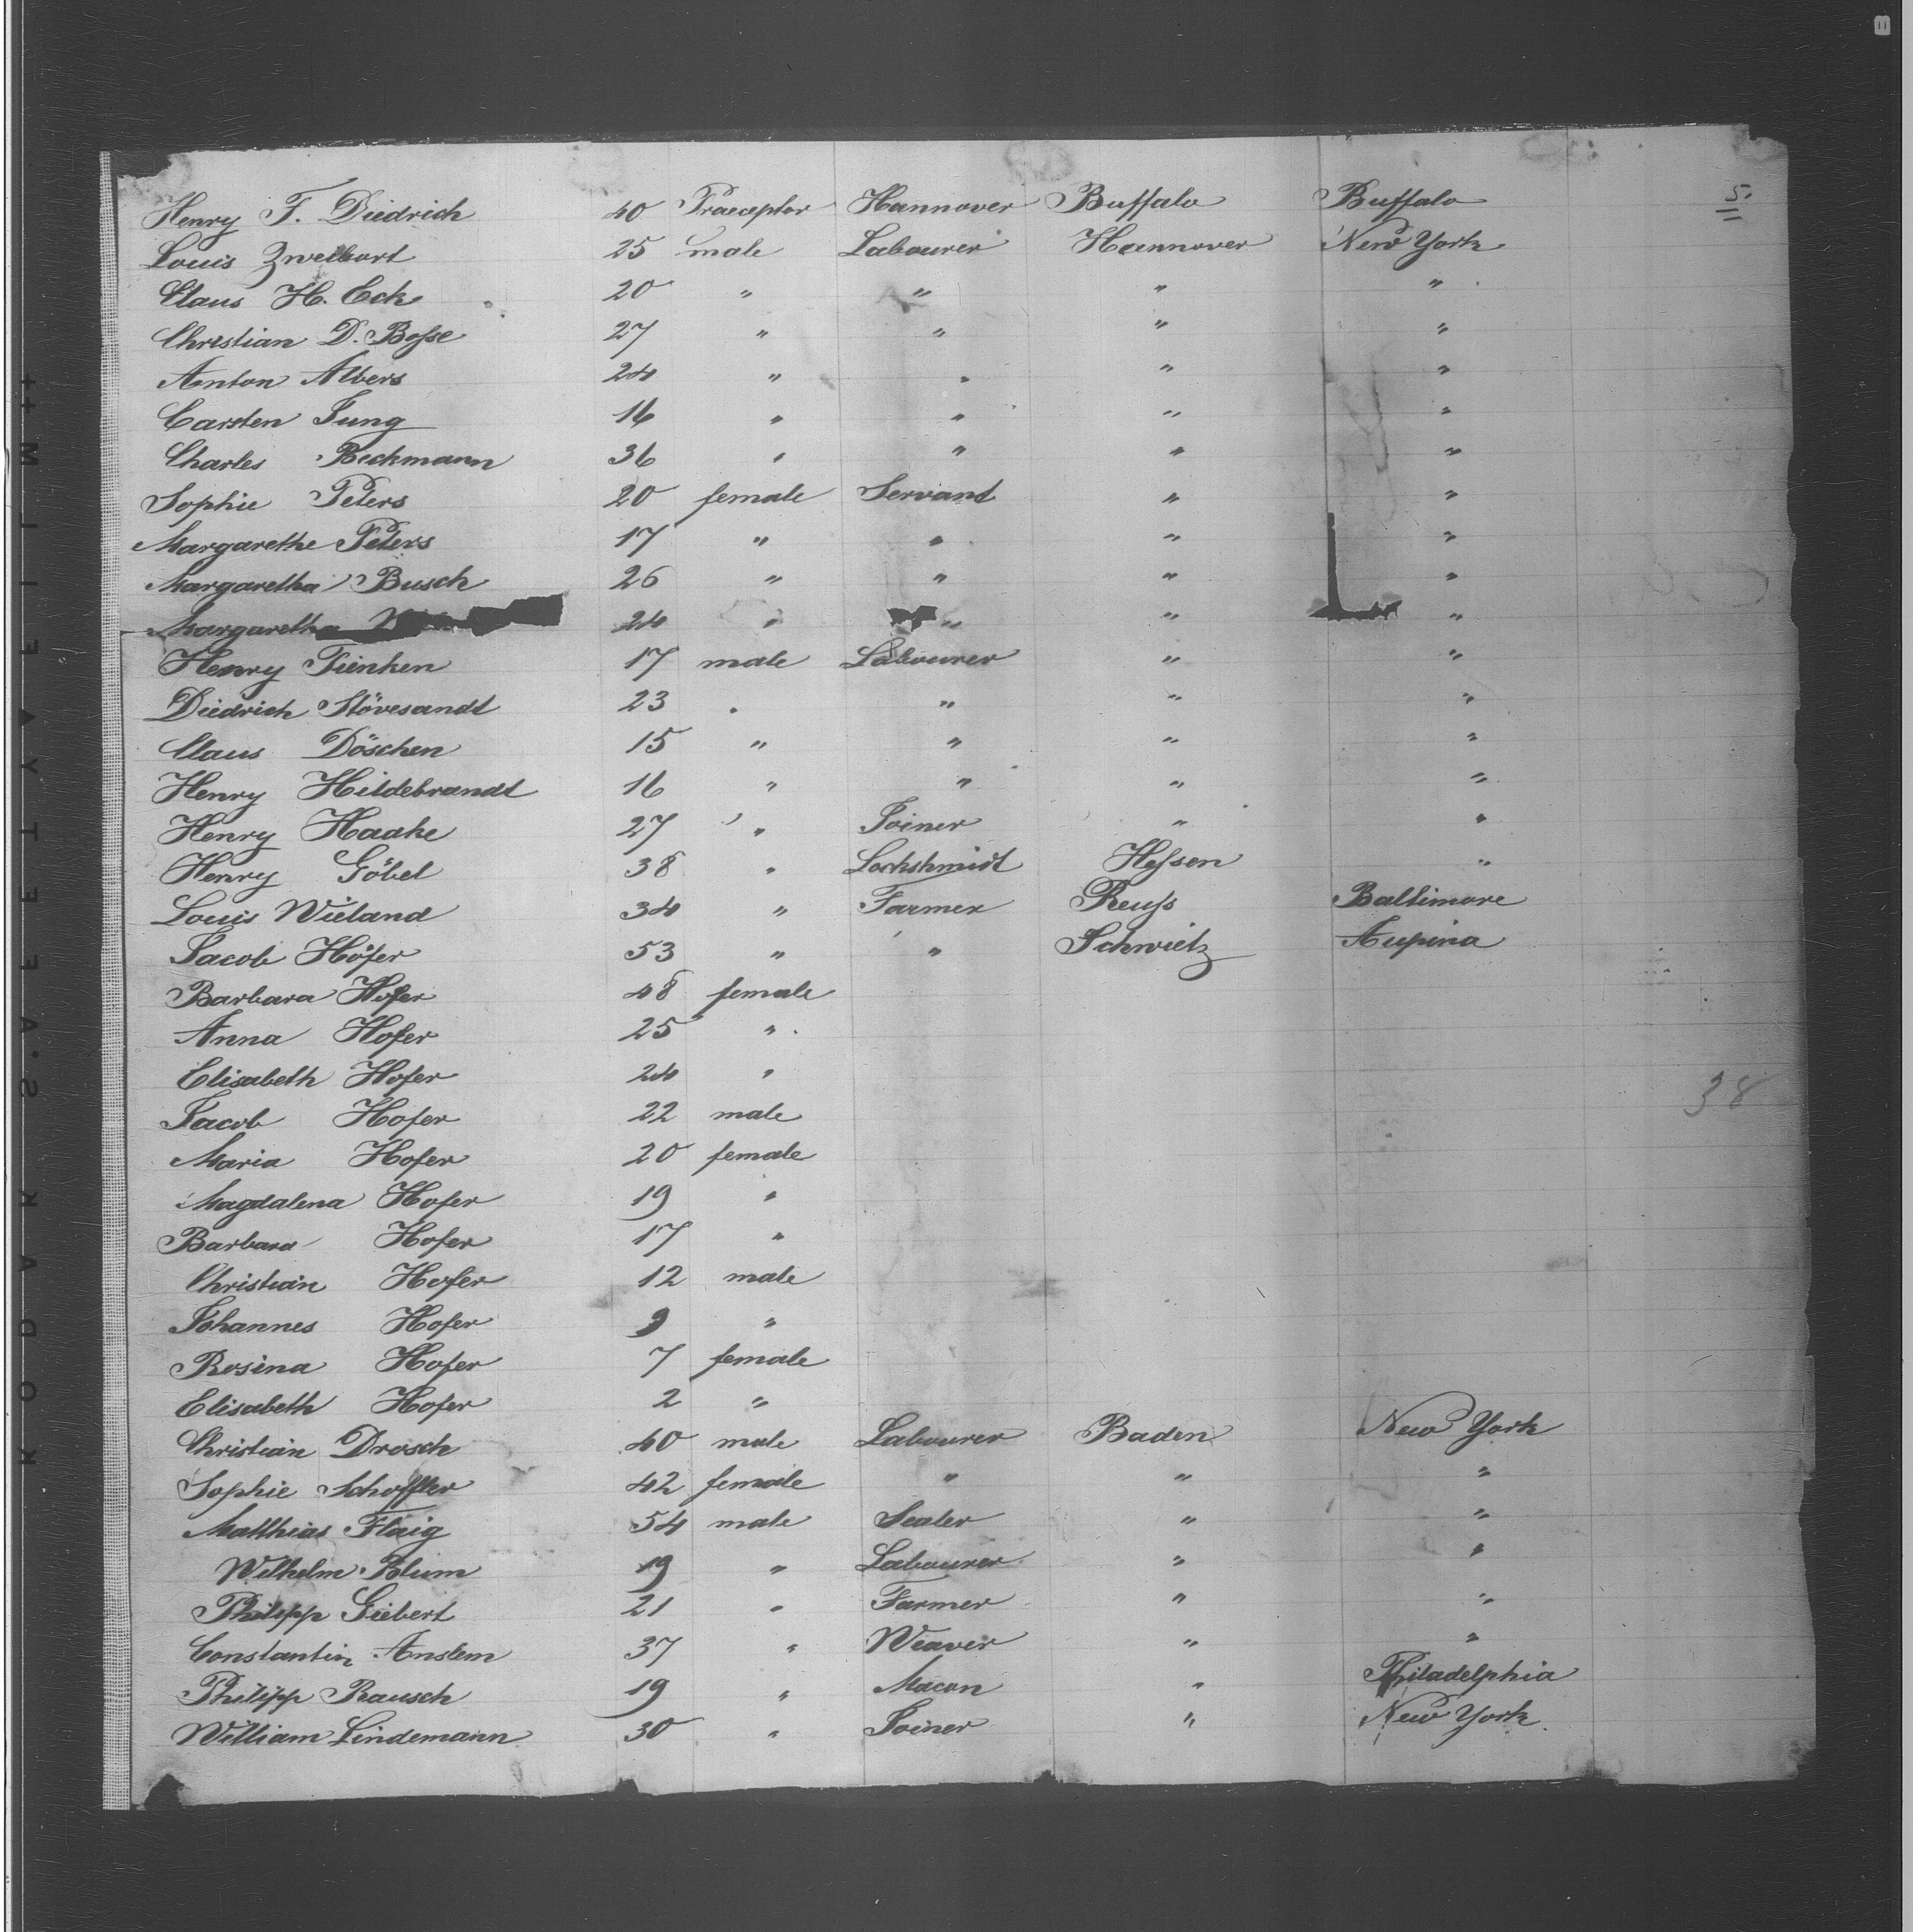 5.
Henry F. Diedrich 40 Praeceptor Hannover Buffalo Buffalo
Louis Zweibart 25 male Labourer Hannover New York
Claus H. Eck 20 " " " "
Christian D. Bosse 27 " " " "
Anton Albers 24 " " " "
Carsten Jung 16 " " " "
Charles Beckmann 36 " " " "
Sophie Peters 20 female Servant " "
Margarethe Peters 17 " " " "
Margaretha Busch 26 " " " "
Margaretha 24 " " " "
Henry Tienken 17 male Labourer " "
Diedrich Stövesandt 23 " " " "
Claus Döschen 15 " " " "
Henry Hildebrandt 16 " " " "
Henry Haake 27 " Joiner " "
Henry Göbel 38 " Lockshmidt Hessen "
Louis Wieland 34 " Farmer Reuss Baltimore
Jacob Höfer 53 " " Schwietz Aupina
Barbara Hofer 48 female
Anna Hofer 25 "
Elisabeth Hofer 24 "
Jacob Hofer 22 male
38
Maria Hofer 20 female
Magdalena Hofer 19 "
Barbara Hofer 17 "
Christian Hofer 12 male
Johannes Hofer 9 "
Rosina Hofer 7 female
Elisabeth Hofer 2 "
Christian Drosch 40 male Labourer Baden New York
Sophie Schoffler 42 female " " "
Matthias Flaig 54 male Sealer " "
Wilhelm Blum 19 " Labourer " "
Philipp Siebert 21 " Farmer " "
Constantin Anslem 37 " Weaver " "
Philipp Rausch 19 " Macon " Philadelphia
William Lindemann 30 " Joiner " New York
KODAK S.AFETY A FILM